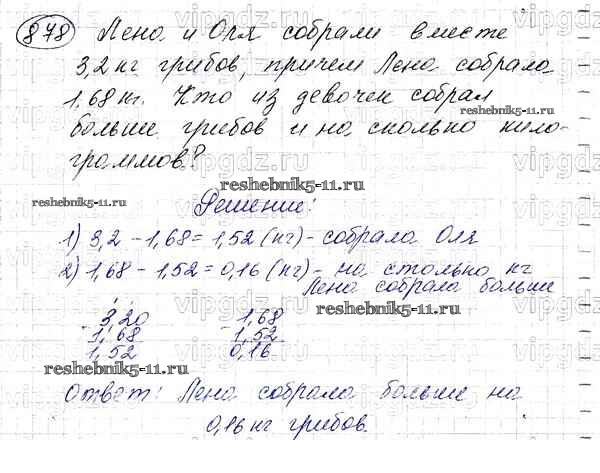 878 Лена и Оля собрали вместе
3,2 кг грибов, причем Лена собрала
1,68 кг. Кто из девочек собрал
reshebnik5-11.ru
больше грибов и на сколько кило-
граммов?
reshebnik5-11.ru
reshebnik5-11.ru
Решение:
1) 3,2 - 1,68 = 1,52 (кг) - собрала Оля
2) 1,68 - 1,52 = 0,16 (кг) - на столько кг
Лена собрала больше
reshebnik5-11.ru
- 3,20 - 1,68
1,68 1,52
1,52 0,16
reshebnik5-11.ru
Ответ: Лена собрала больше на
0,16 кг грибов.